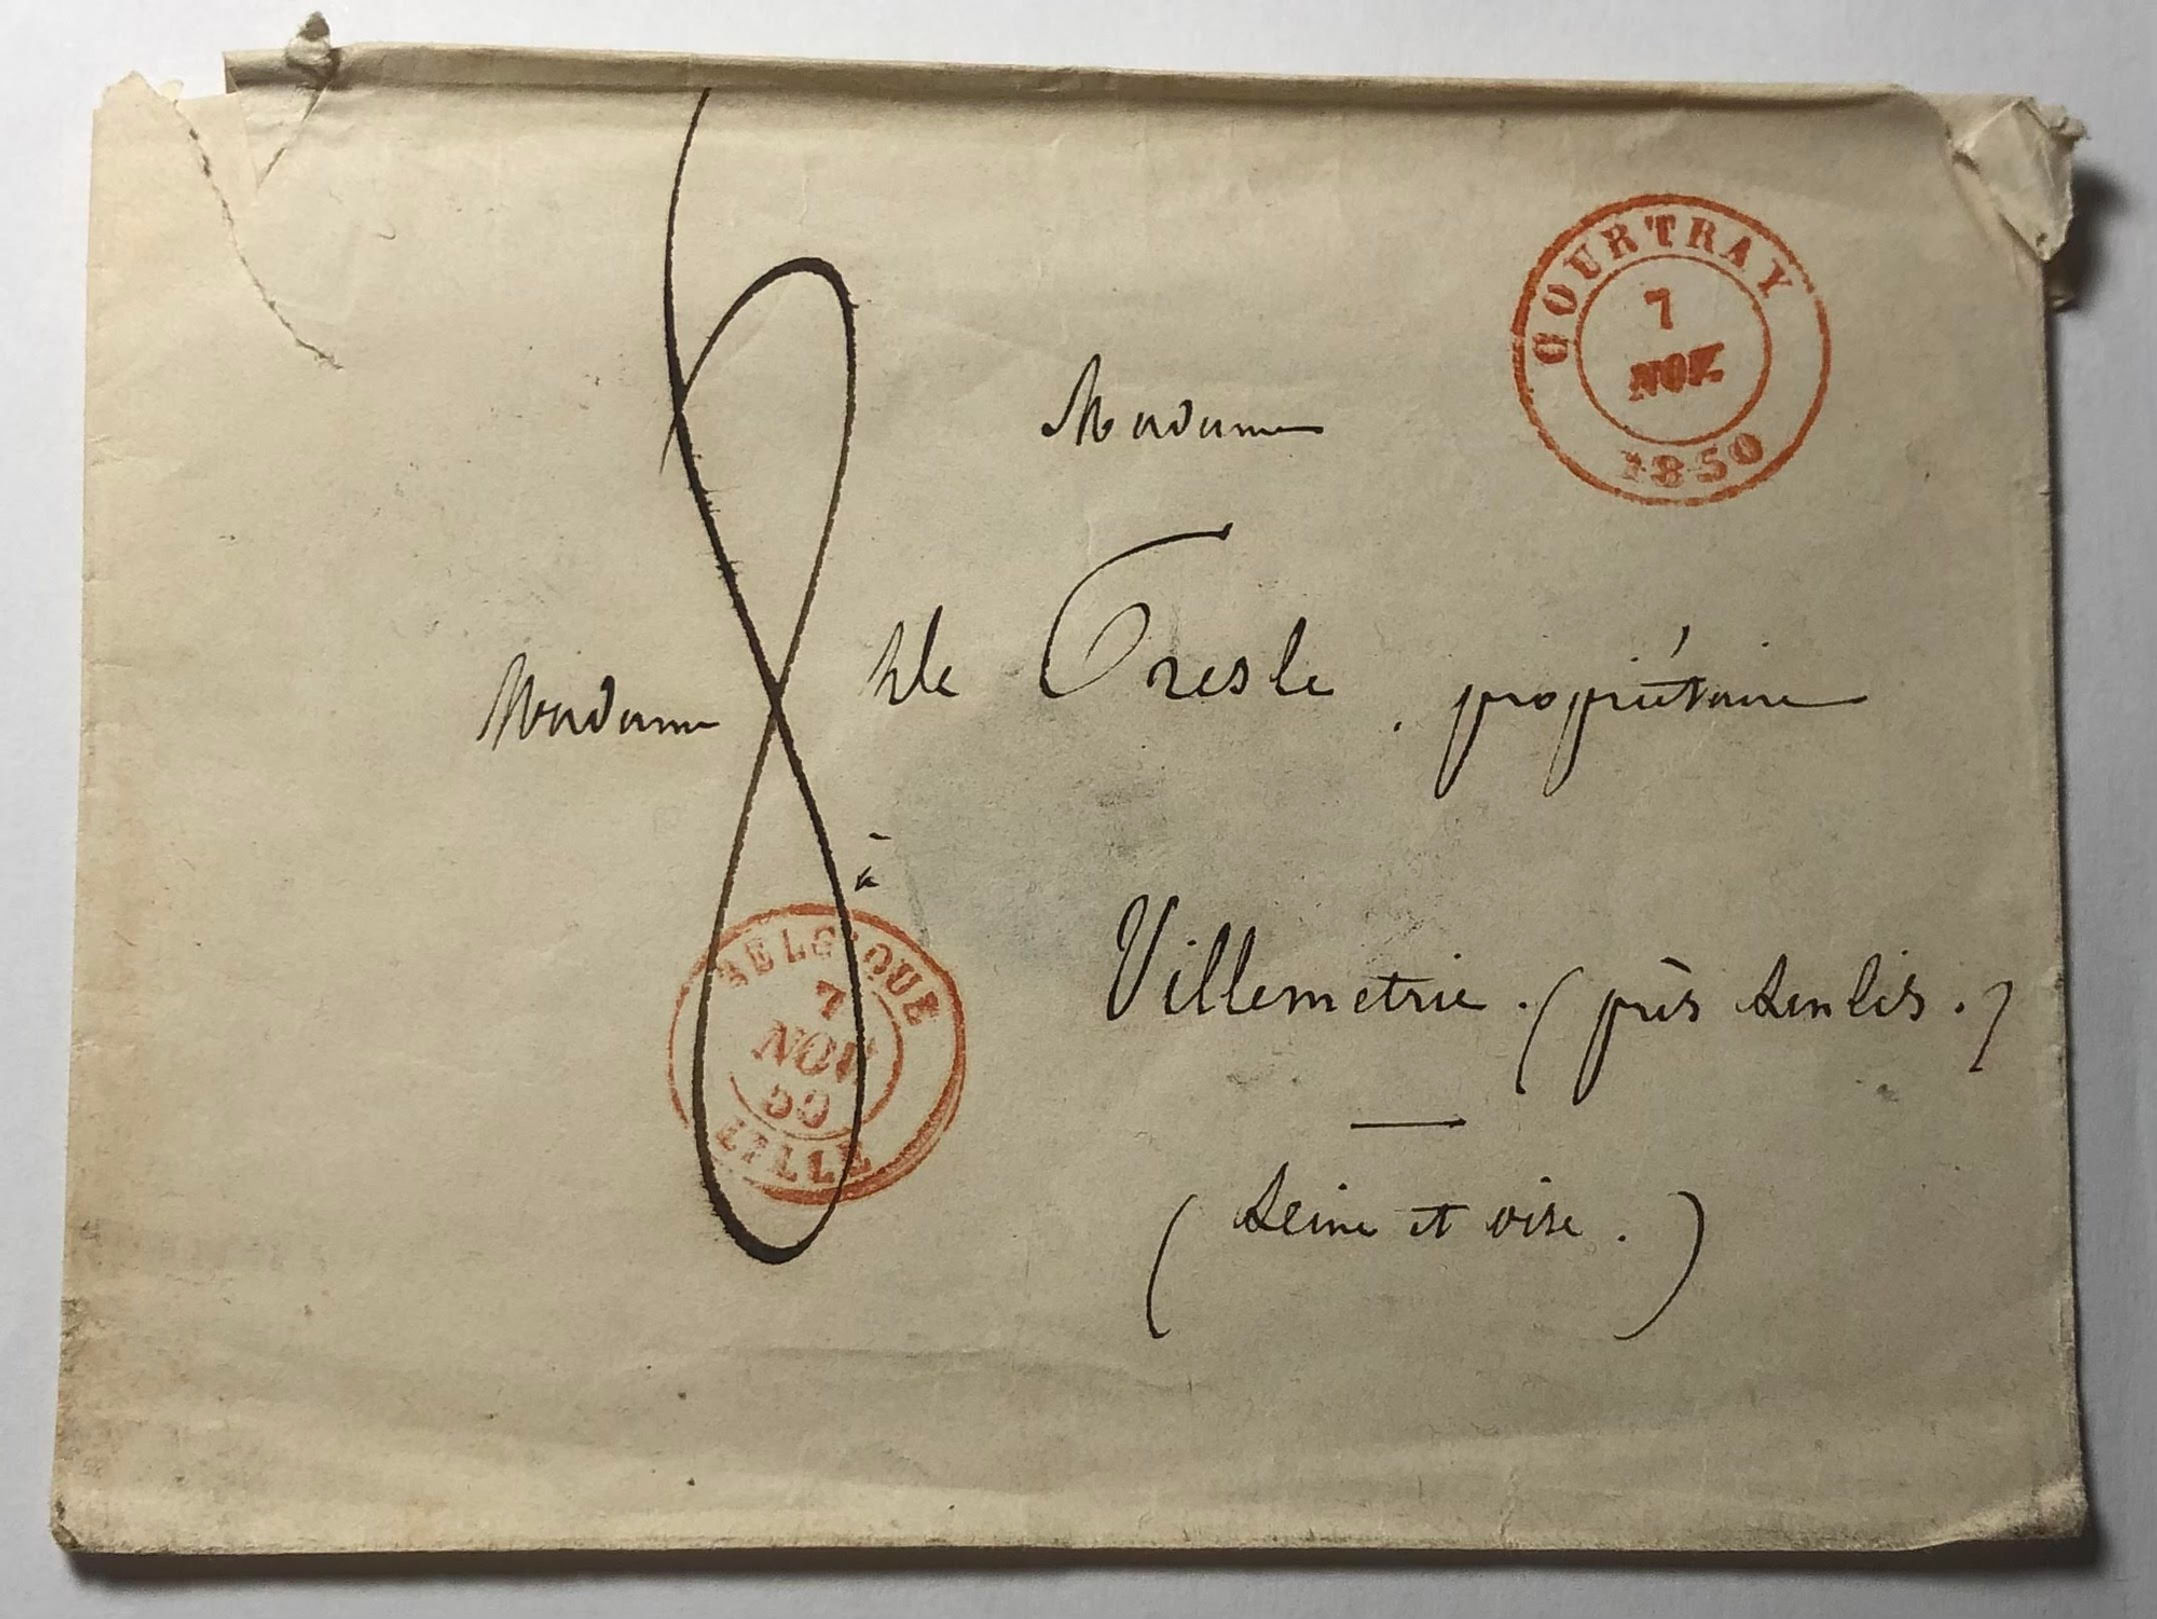 COURTRAY
7
NOV.
1850
Madame
Madame de Presle, propriétaire
à
Villemetrie. (près Senlis.)
(Seine et oise.)
8
BELGIQUE
7
NOV
50
LILLE